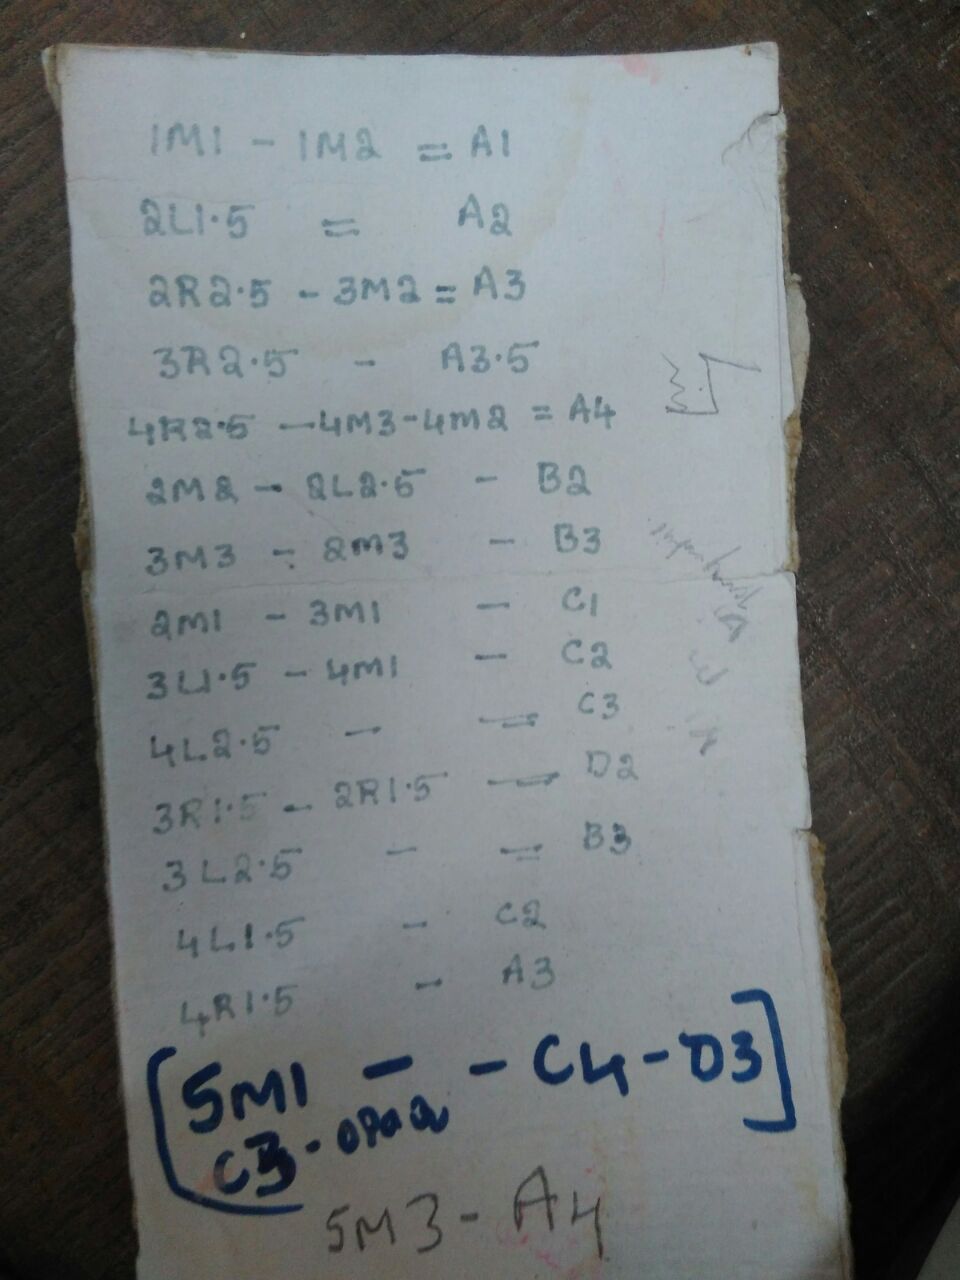 1M1 - 1M2 = A1
2L1.5 = A2
2R2.5 - 3M2 = A3
3R2.5 - A3.5
4R2.5 - 4M3-4M2 = A4
2M2 - 2L2.5 - B2
3M3 - 2M3 - B3
2M1 - 3M1 - C1
3L1.5 - 4M1 - C2
4L2.5 - = C3
3R1.5 - 2R1.5 - D2
3L2.5 - = B3
4L1.5 - C2
4R1.5 - A3
[5M1 - - C4-D3]
C3-opaq
5M3 - A4